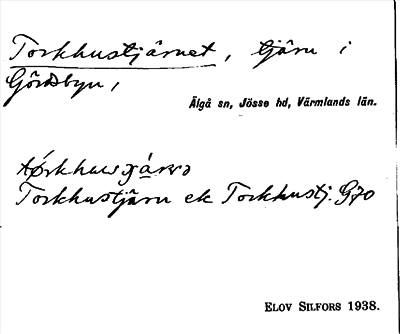 Torkhustjärnet, tjärn i
Gårdsbyn,
Älgå sn, Jösse hd, Värmlands län.
Torkhustjärn ek Torkhustj. G70
ELOV SILFORS 1938.